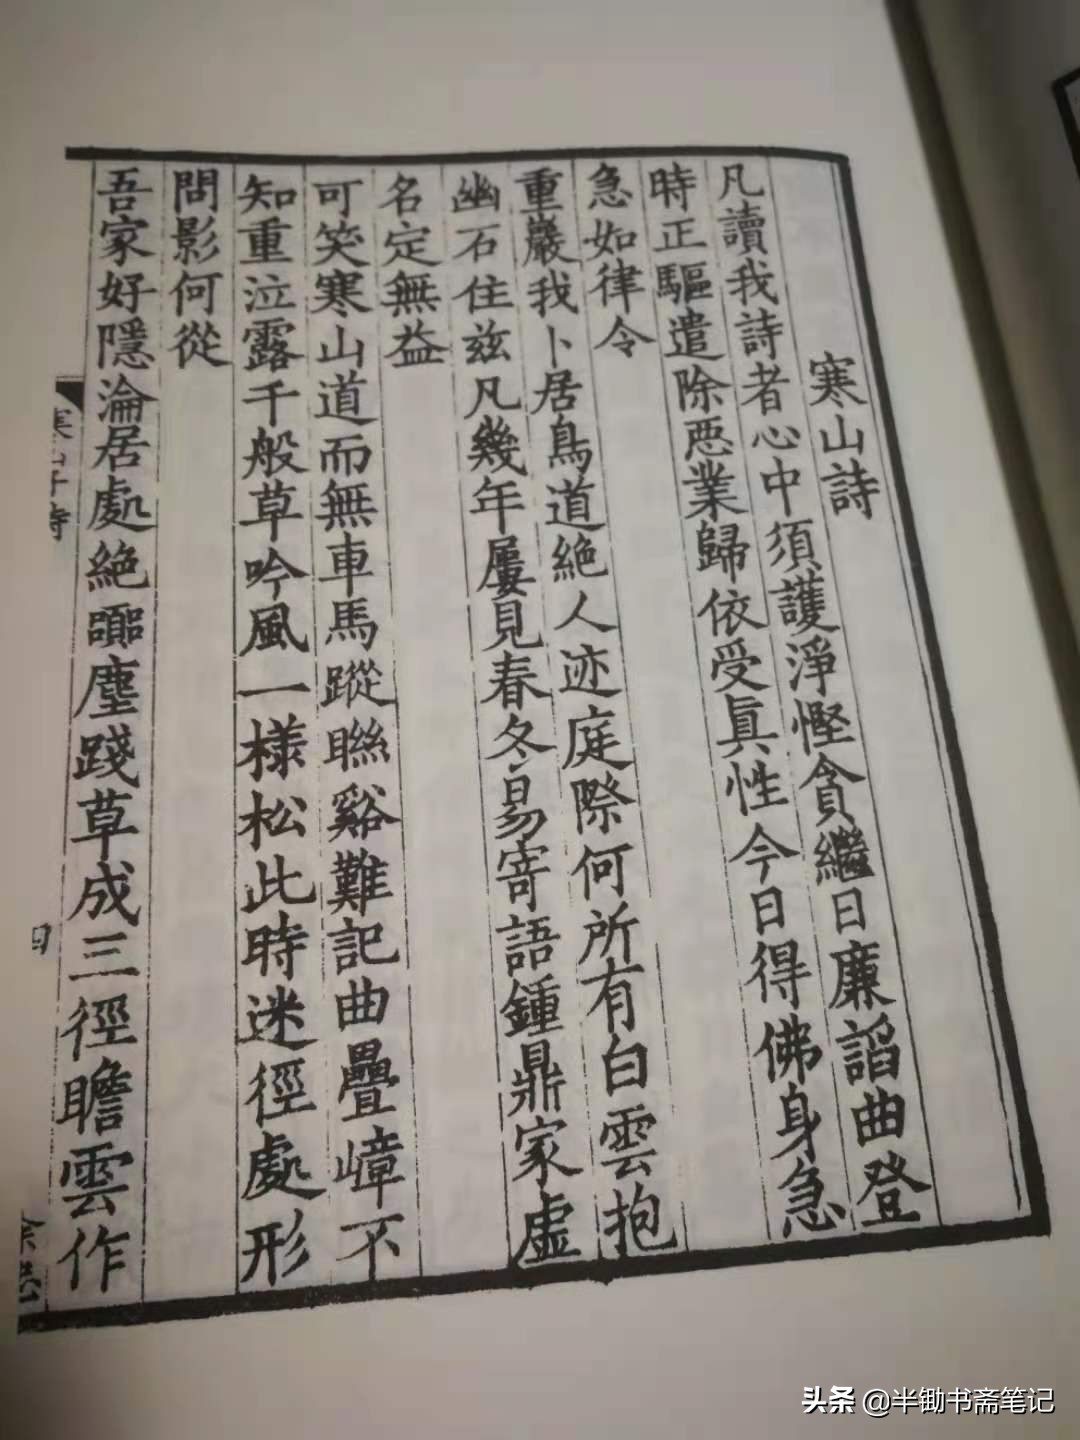 寒山詩
凡讀我詩者心中須護淨慳貪繼日廉諂曲登
時正驅遣除惡業歸依受眞性今日得佛身急
急如律令
重巖我卜居鳥道絶人迹庭際何所有白雲抱
幽石住兹凡幾年屢見春冬易寄語鍾鼎家虛
名定無益
可笑寒山道而無車馬蹤聯谿難記曲疊嶂不
知重泣露千般草吟風一樣松此時迷徑處形
問影何從
吾家好隱淪居處絶嚻塵踐草成三徑瞻雲作
寒山子詩
四
头条 @半锄书斋笔记